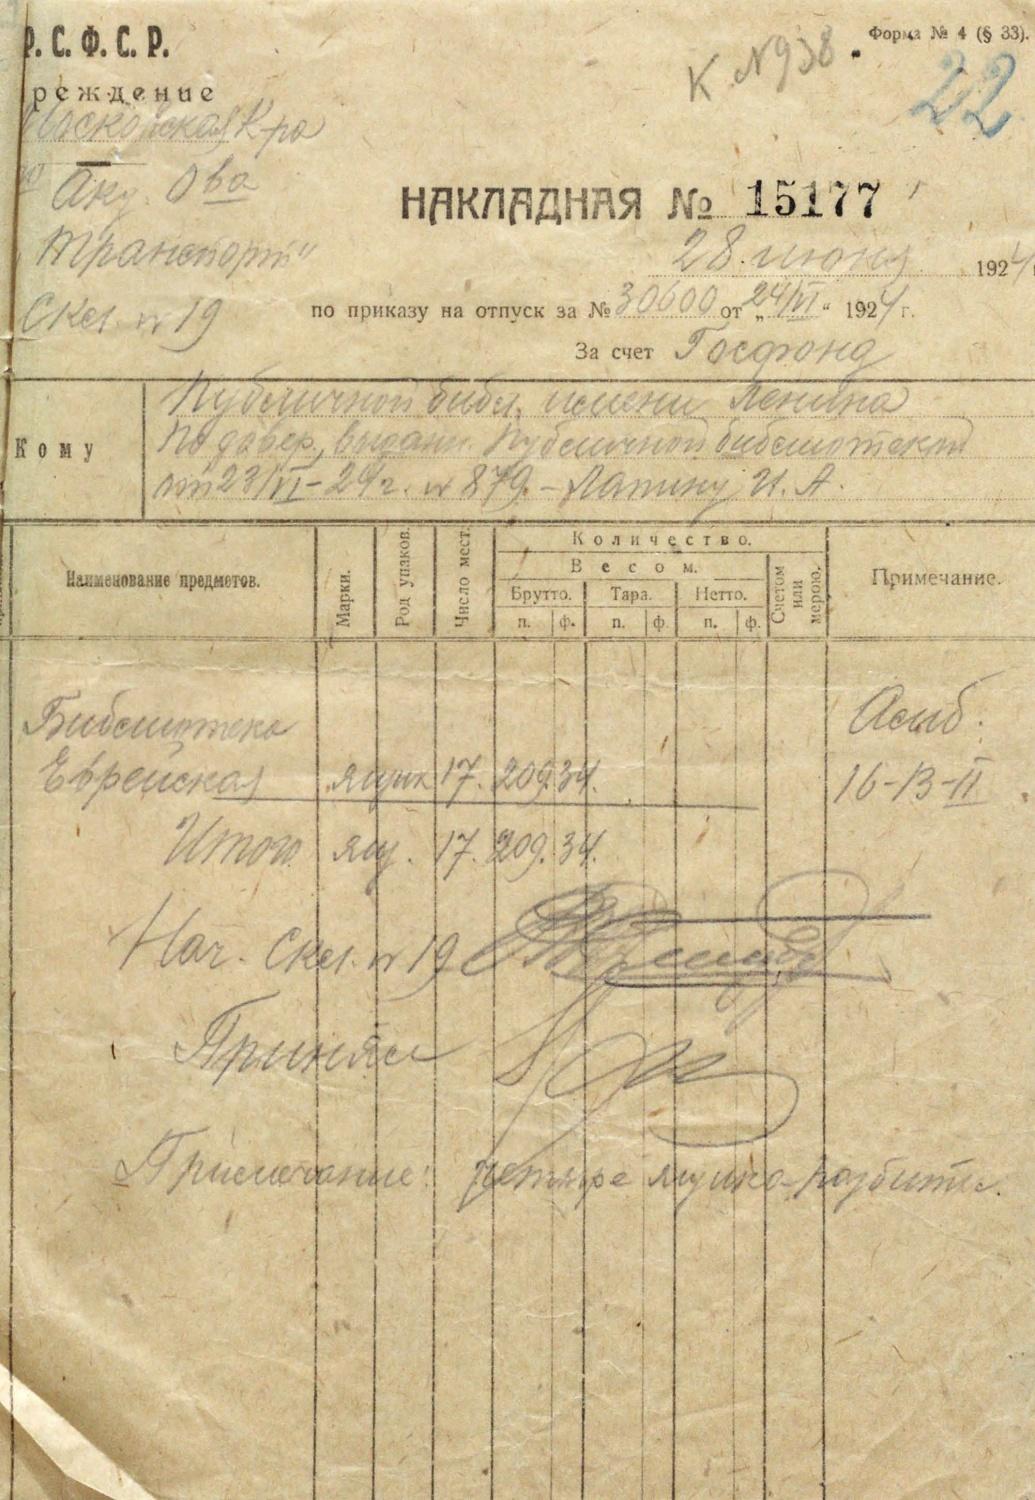 Р. С. Ф. С. Р.
Форма № 4 (§ 33).
К №938
22
реждение
Московская К-ра
Акц. О-ва
Транспорт"
Скл. № 19
НАКЛАДНАЯ № 15177
28 июня 1924
по приказу на отпуск за № 30600 от „24/VI“ 1924 г.
За счет Госфонд
Кому
Публичной библ. имени Ленина
По довер., выдан. Публичной библиотекой
от 23/VI-24 г. № 879 - Лапину И. А.
Наименование предметов.
Марки.
Род упаков.
Число мест.
Количество.
Весом.
Брутто. Тара. Нетто.
п. ф. п. ф. п. ф.
Счетом или мерою.
Примечание.
Библиотека
Еврейская ящик 17. 209. 34.
16-13-II
Итого ящ. 17. 209. 34.
Нач. Скл. № 19
Принял
Примечание: четыре ящика разбиты.